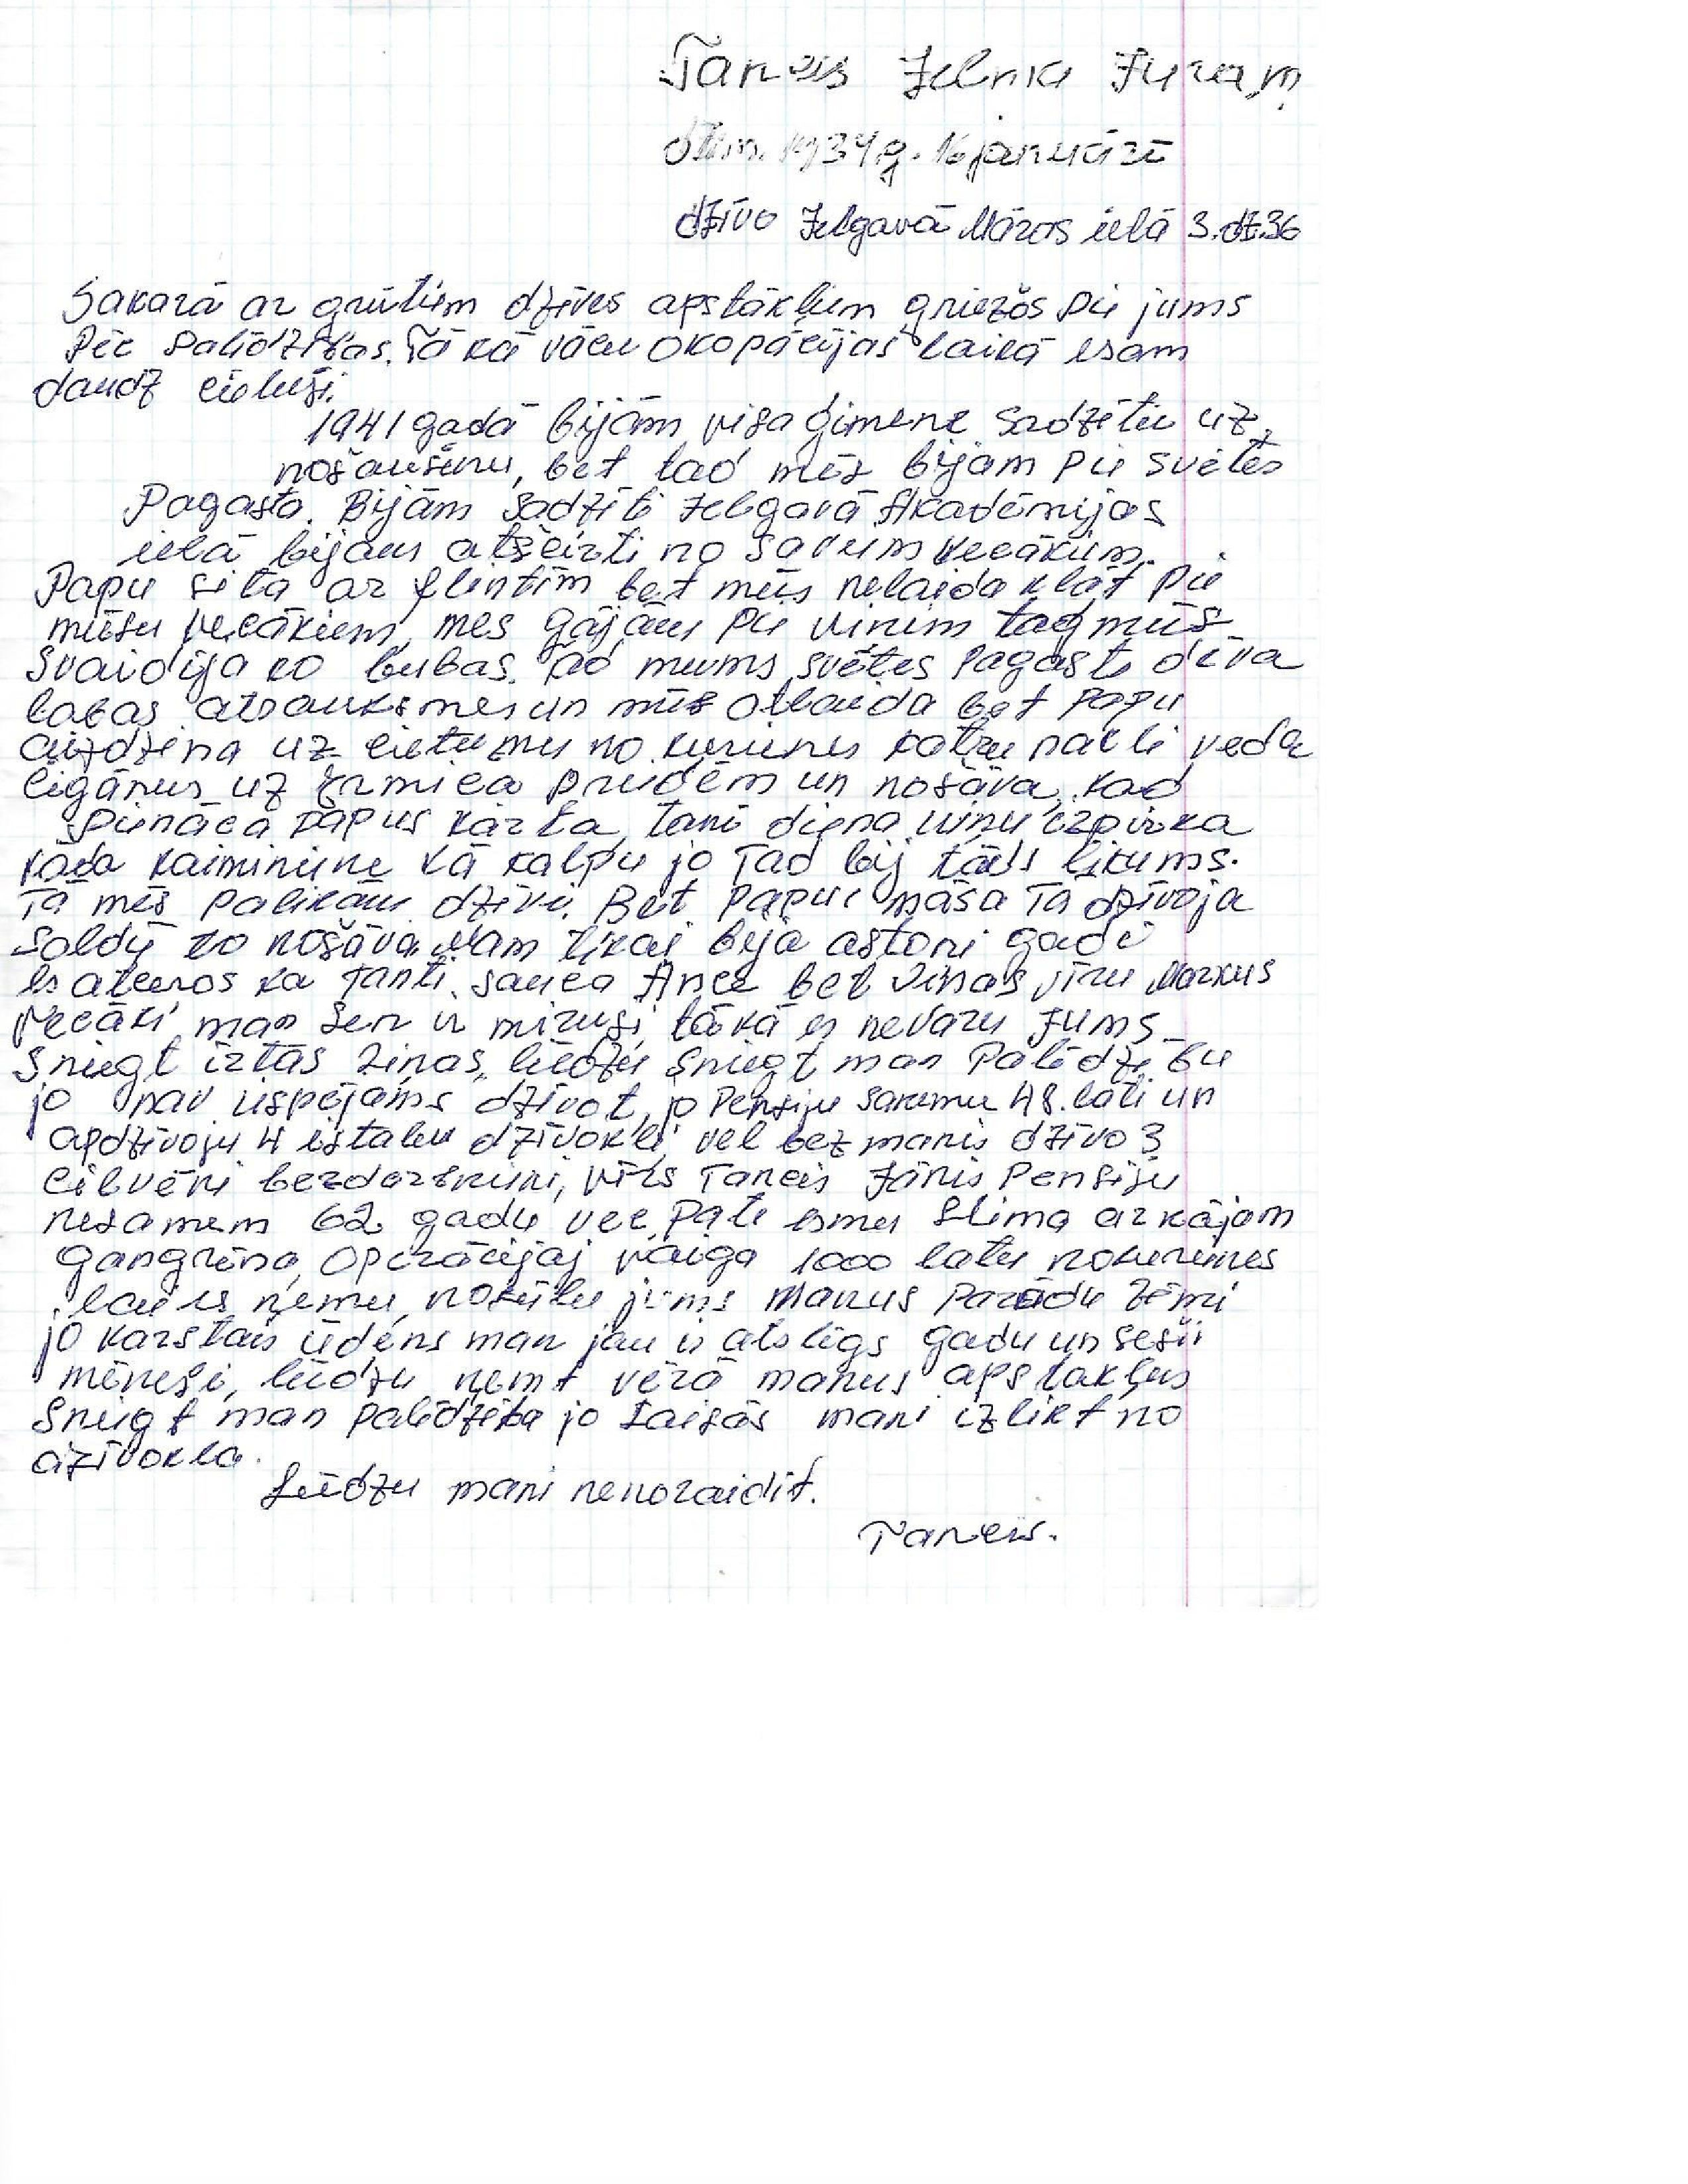 Tancis Jeļena Juram
dzim. 1934g. 16 janvārī
dzīvo Jelgavā Māras ielā 3.dz.36
Sakarā ar grūtiem dzīves apstākļiem griežos pie jums
Pēc Palīdzības. Tā kā vācu okopācijas laikā esam
daudz cieluši.
1941 gadā bijām visa ģimene sadzīti uz
nošaušanu, bet tad mēs bijam pie svētes
Pagasta. Bijām sadzīti Jelgavā Akadēmijas
ielā bijām atšķirti no saviem vecākiem.
Papu sita ar flintīm bet mūs nelaida klāt pie
mūsu vecākiem, mes gājām pie viņiem tad mūs
svaidīja ko bubas. Tad mums svētes Pagasts deva
labas atsauksmes un mūs atlaida bet papu
aizdzina uz cietumu no kurienes katru nakti veda
čigānus uz prudēm un nošāva, kad
pienāca papus kārta, tanī diena viņu izpirka
kāda kaiminiene kā kalpu jo Tad bij tāds likums.
Tā mēs Palikām dzīvi. Bet Papus māsa Tā dzīvoja
Saldū to nošāva. Man tikai bija astoņi gadi
Es atceros ka tanti sauca Ance bet viņas vīru Markus
Vecāki man sen ir miruši, tā kā es nevaru Jums
Sniegt īztās ziņas, lūdzu sniegt man Palīdzību
jo nav iespējams dzīvot, jo Pensiju saņemu 48. lati un
apdzīvoju 4 istabu dzīvokli vel bez manis dzīvo 3
cilvēki bezdarbnieki, vīrs Tancis Jānis Pensiju
nesaņem 62 gadu vec. Pati esmu slima ar kājam
gangrēna, Operācijaj vaiga 1000 latu no kurienes
lai es ņemu, nosūtu jums manus Parādu Zīmi
jo karstais ūdens man jau ir atslēgs gadu un seši
mēneši, lūdzu ņemt vērā manus apstakļus
Sniegt man Palīdzība jo taisās mani izlikt no
dzīvokļa.
Lūdzu mani nenoraidīt.
Tancis.